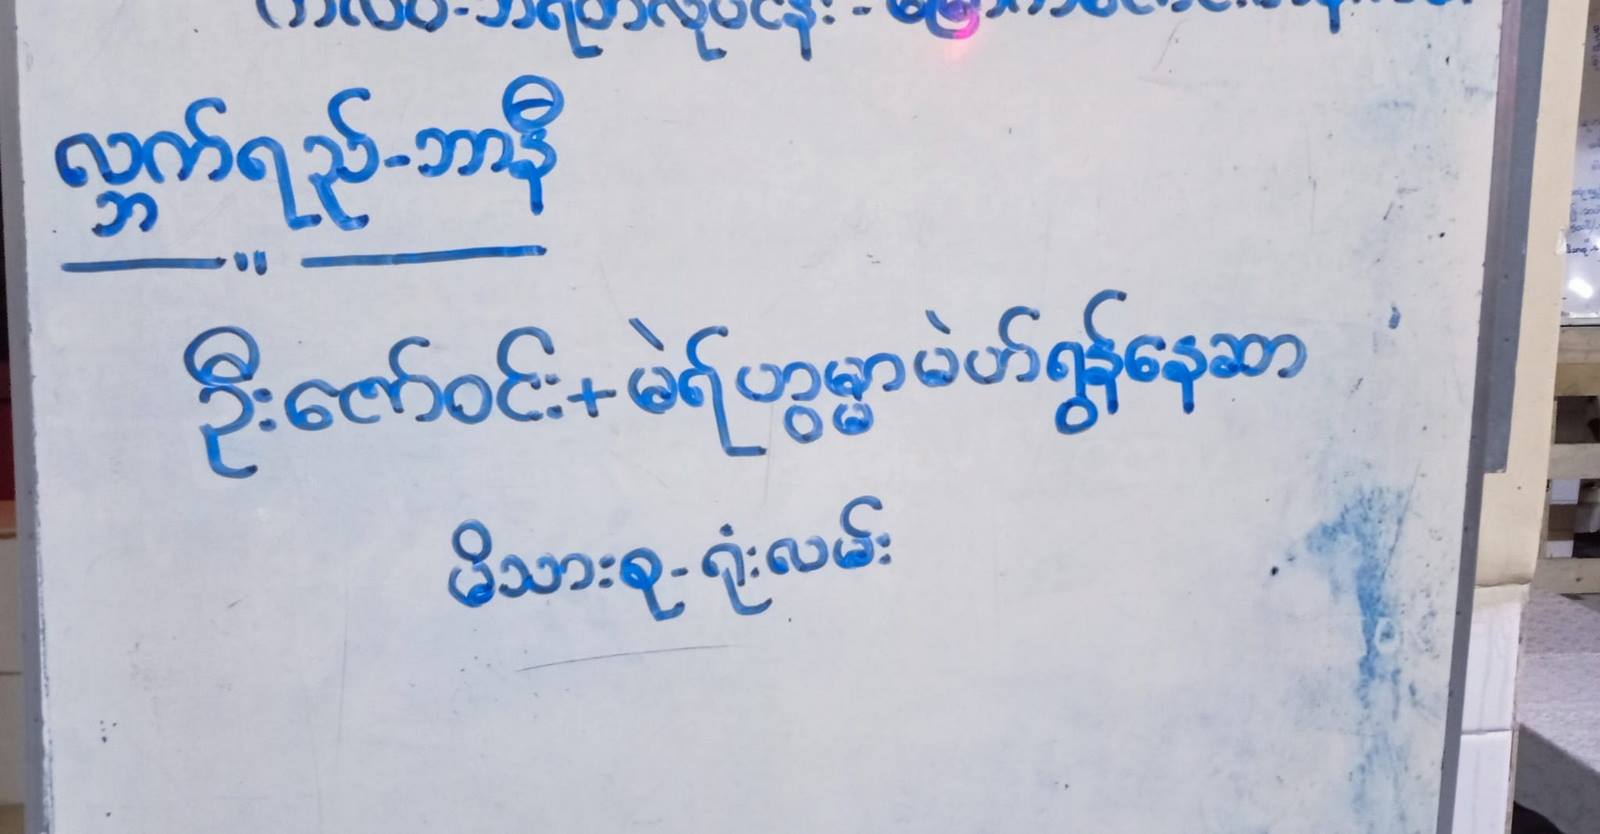 လ္ဘက်ရည်-ဘာနီ
ဦးဇော်ဝင်း+မဲရ်ဟွမ္မာမဲဟ်ရွန်နေဆာ
မိသားစု-ရုံးလမ်း